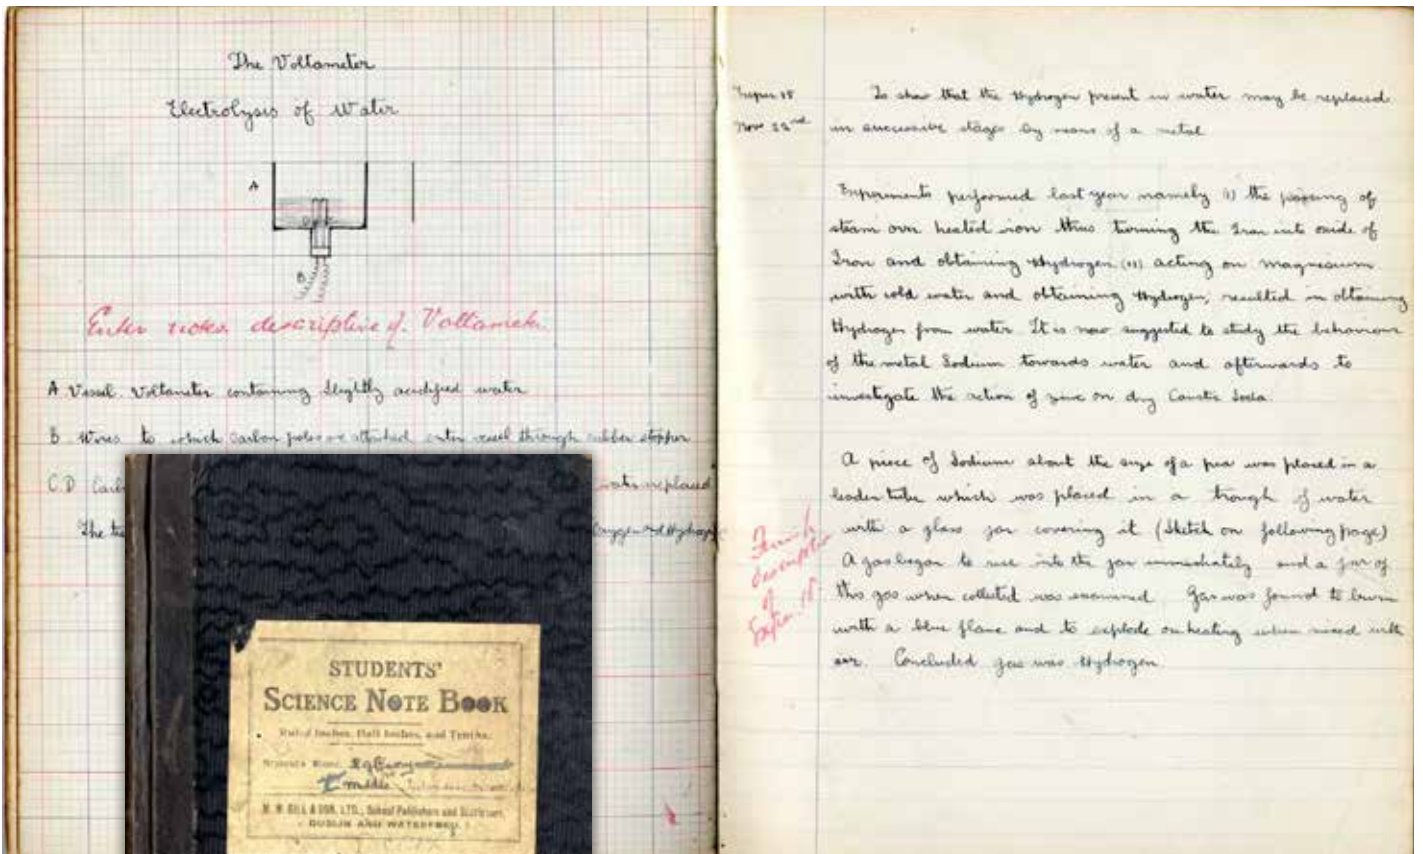 The Voltameter
Electrolysis of Water
A
B
Enter notes descriptive of Voltameter.
A Vessel. Voltameter containing slightly acidified water
B Wires to which carbon poles are attached enter vessel through rubber stopper
C.D water replaced
The Oxygen and Hydrogen
STUDENTS'
SCIENCE NOTE BOOK
Ruled Inches, Half Inches, and Tenths.
Student's Name
Middle
M. H. GILL & SON, LTD., School Publishers and Stationers,
DUBLIN AND WATERFORD.
Exper 18
Nov 22nd
To show that the Hydrogen present in water may be replaced
in successive stages by means of a metal
Experiments performed last year namely (I) the passing of
steam over heated iron thus turning the Iron into oxide of
Iron and obtaining Hydrogen (II) acting on magnesium
with cold water and obtaining Hydrogen, resulted in obtaining
Hydrogen from water. It is now suggested to study the behaviour
of the metal Sodium towards water and afterwards to
investigate the action of zinc on dry Caustic Soda.
A piece of Sodium about the size of a pea was placed in a
leaden tube which was placed in a trough of water
with a glass jar covering it (Sketch on following page)
A gas began to rise into the jar immediately and a jar of
this gas when collected was examined Gas was found to burn
with a blue flame and to explode on heating when mixed with
air. Concluded gas was Hydrogen.
Finish
description
of
Exper. 18